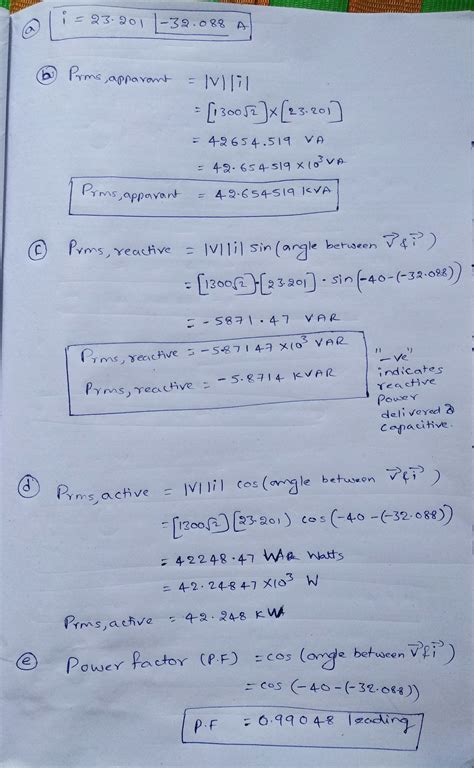 ⓐ i = 23.201 ∠-32.088 A
ⓑ Prms,apparant = |V||i|
= [1300√2]×[23.201]
= 42654.519 VA
= 42.654519 ×10³ VA
Prms,apparant = 42.654519 KVA
ⓒ Prms,reactive = |V||i| sin(angle between V⃗ & i⃗)
= [1300√2]·[23.201] · sin(-40-(-32.088))
= -5871.47 VAR
Prms,reactive = -5.87147 ×10³ VAR
Prms,reactive = -5.8714 KVAR
"-ve"
indicates
reactive
power
delivered &
capacitive.
ⓓ Prms,active = |V||i| cos(angle between V⃗ & i⃗)
= [1300√2][23.201) cos(-40-(-32.088))
= 42248.47 Watts
= 42.24847 ×10³ W
Prms,active = 42.248 KW
ⓔ Power factor (P.F) = cos (angle between V⃗ & i⃗)
= cos (-40-(-32.088))
P.F = 0.99048 leading